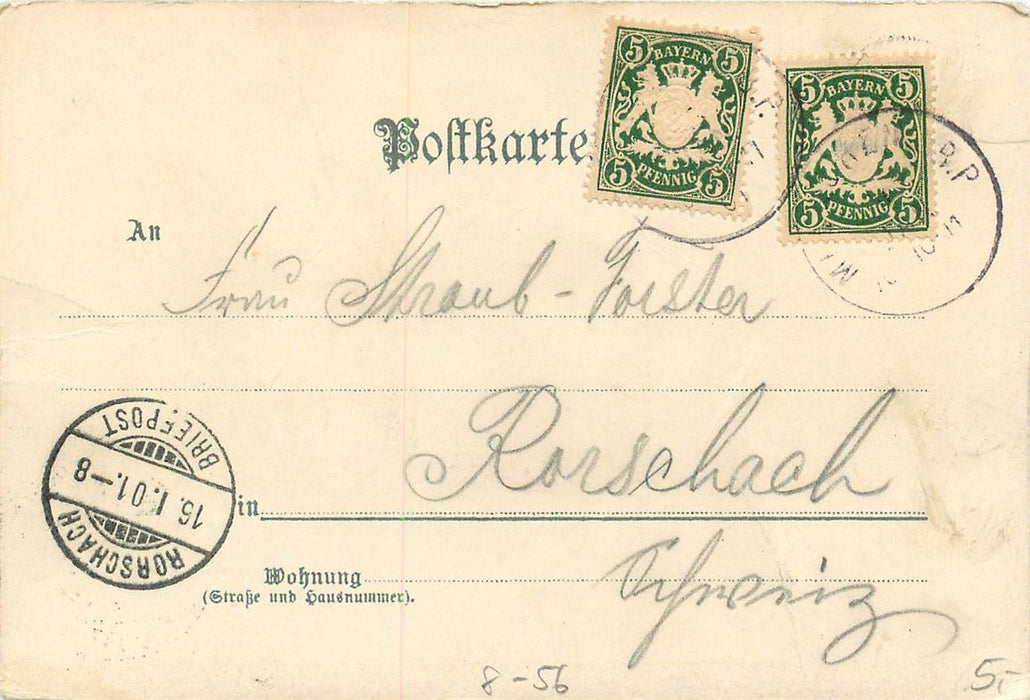 BAYERN
5 5
5 PFENNIG 5
BAYERN
5 5
5 PFENNIG 5
B.P.
Postkarte
An
Frau Straub-Forster
Rorschach
in
Schweiz
Wohnung
(Straße und Hausnummer).
RORSCHACH
16.I.01.-8
BRIEFPOST
8-56
5.-